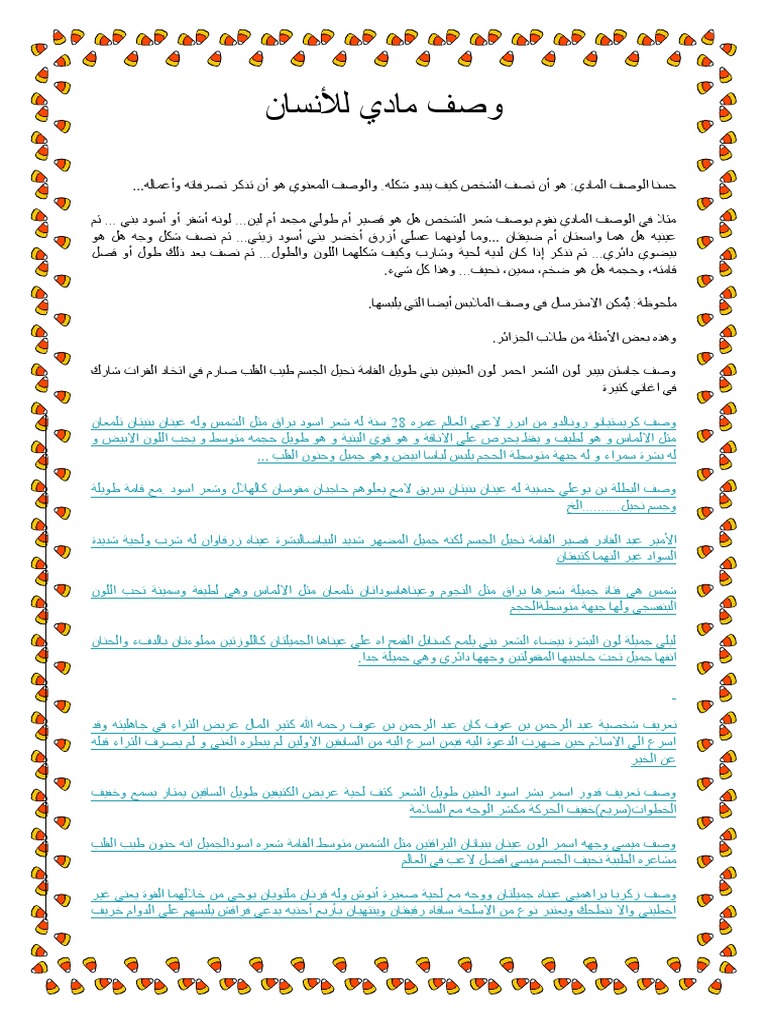 وصف مادي للأنسان
حسنا الوصف المادي: هو أن تصف الشخص كيف يبدو شكله. والوصف المعنوي هو أن تذكر تصرفاته وأعماله...
مثلا في الوصف المادي نقوم بوصف شعر الشخص هل هو قصير أم طولي مجعد أم لين... لونه أشقر أو أسود بني ... ثم
عينيه هل هما واسعتان أم ضيقتان ...وما لونهما عسلي أزرق أخضر بني أسود زيتي... ثم نصف شكل وجه هل هو
بيضوي دائري... ثم نذكر إذا كان لديه لحية وشارب وكيف شكلهما اللون والطول... ثم نصف بعد ذلك طول أو قصل
قامته، وحجمه هل هو ضخم، سمين، نحيف... وهذا كل شيء.
ملحوظة: يُمكن الاسترسال في وصف الملابس أيضا التي يلبسها.
وهذه بعض الأمثلة من طلاب الجزائر.
وصف جاستن بيبر لون الشعر احمر لون العينين بني طويل القامة نحيل الجسم طيب القلب صارم في اتخاد القرات شارك
في اغاني كثيرة
وصف كريستيانو رونالدو من ابرز لاعبي العالم عمره 28 سنة له شعر اسود براق مثل الشمس وله عينان بنيتان تلمعان
مثل الالماس و هو لطيف و يقظ يحرص على الاناقة و هو قوي البنية و هو طويل حجمه متوسط و يحب اللون الابيض و
له بشرة سمراء و له جبهة متوسطة الحجم يلبس لباسا ابيض وهو جميل وحنون القلب ...
وصف البطلة بن بوعلي حسيبة له عينان بنيتان ببريق لامع يعلوهم حاجبان مقوسان كالهلال وشعر اسود .مع قامة طويلة
وجسم نحيل..........الخ
الأمير عبد القادر قصير القامة نحيل الجسم لكنه جميل المضهر شديد البياضالبشرة عيناه زرقاوان له شرب ولحية شديدة
السواد غير انهما كثيفتان
شمس هي فتاة جميلة شعرها براق مثل النجوم وعيناهاسودانان تلمعان مثل الالماس وهي لطيفة وسمينة تحب اللون
البنفسجي ولها جبهة متوسطةالحجم
ليلى جميلة لون البشرة بيضاء الشعر بني يلمع كسنابل القمح اه على عيناها الجميلتان كاللوزتين مملوءتان بالدفء والحنان
انفها جميل تحت حاجبيها المفقولتين وجهها دائري وهي جميلة جدا.
-
تعريف شخصية عبد الرحمن بن عوف كان عبد الرحمن بن عوف رحمه الله كثير المال عريض الثراء في جاهليته وقد
اسرع الى الاسلام حين ضهرت الدعوة اليه فيمن اسرع اليه من السابقين الاولين لم يبطره الغنى و لم يصرف الثراء قبله
عن الخير
وصف تعريف قدور اسمر بشر اسود العنين طويل الشعر كثف لحية عريض الكتيفين طويل الساقين يمتاز بسمع وخفيف
الخطوات(سريع)خفيف الحركة مكشر الوجه مع السلامة
وصف ميسي وجهه اسمر الون عينان بنيتان البراقتين مثل الشمس متوسط القامة شعره اسودالجميل انه حنون طيب القلب
مشاعره الطيبة نحيف الجسم ميسي افضل لاعب في العالم
وصف زكريا براهميي عيناه جميلتان ووجه مع لحية صغيرة أنوش وله قرنان ملتويان يوحي من خلالهما القوة يعني غير
اخطيني والا ننطحك ويعتبر نوع من الاسلحة ساقاه رقيقتان وينتهيان بأربع أحذيه يدعى فراقش يلبسهم على الدوام خريف